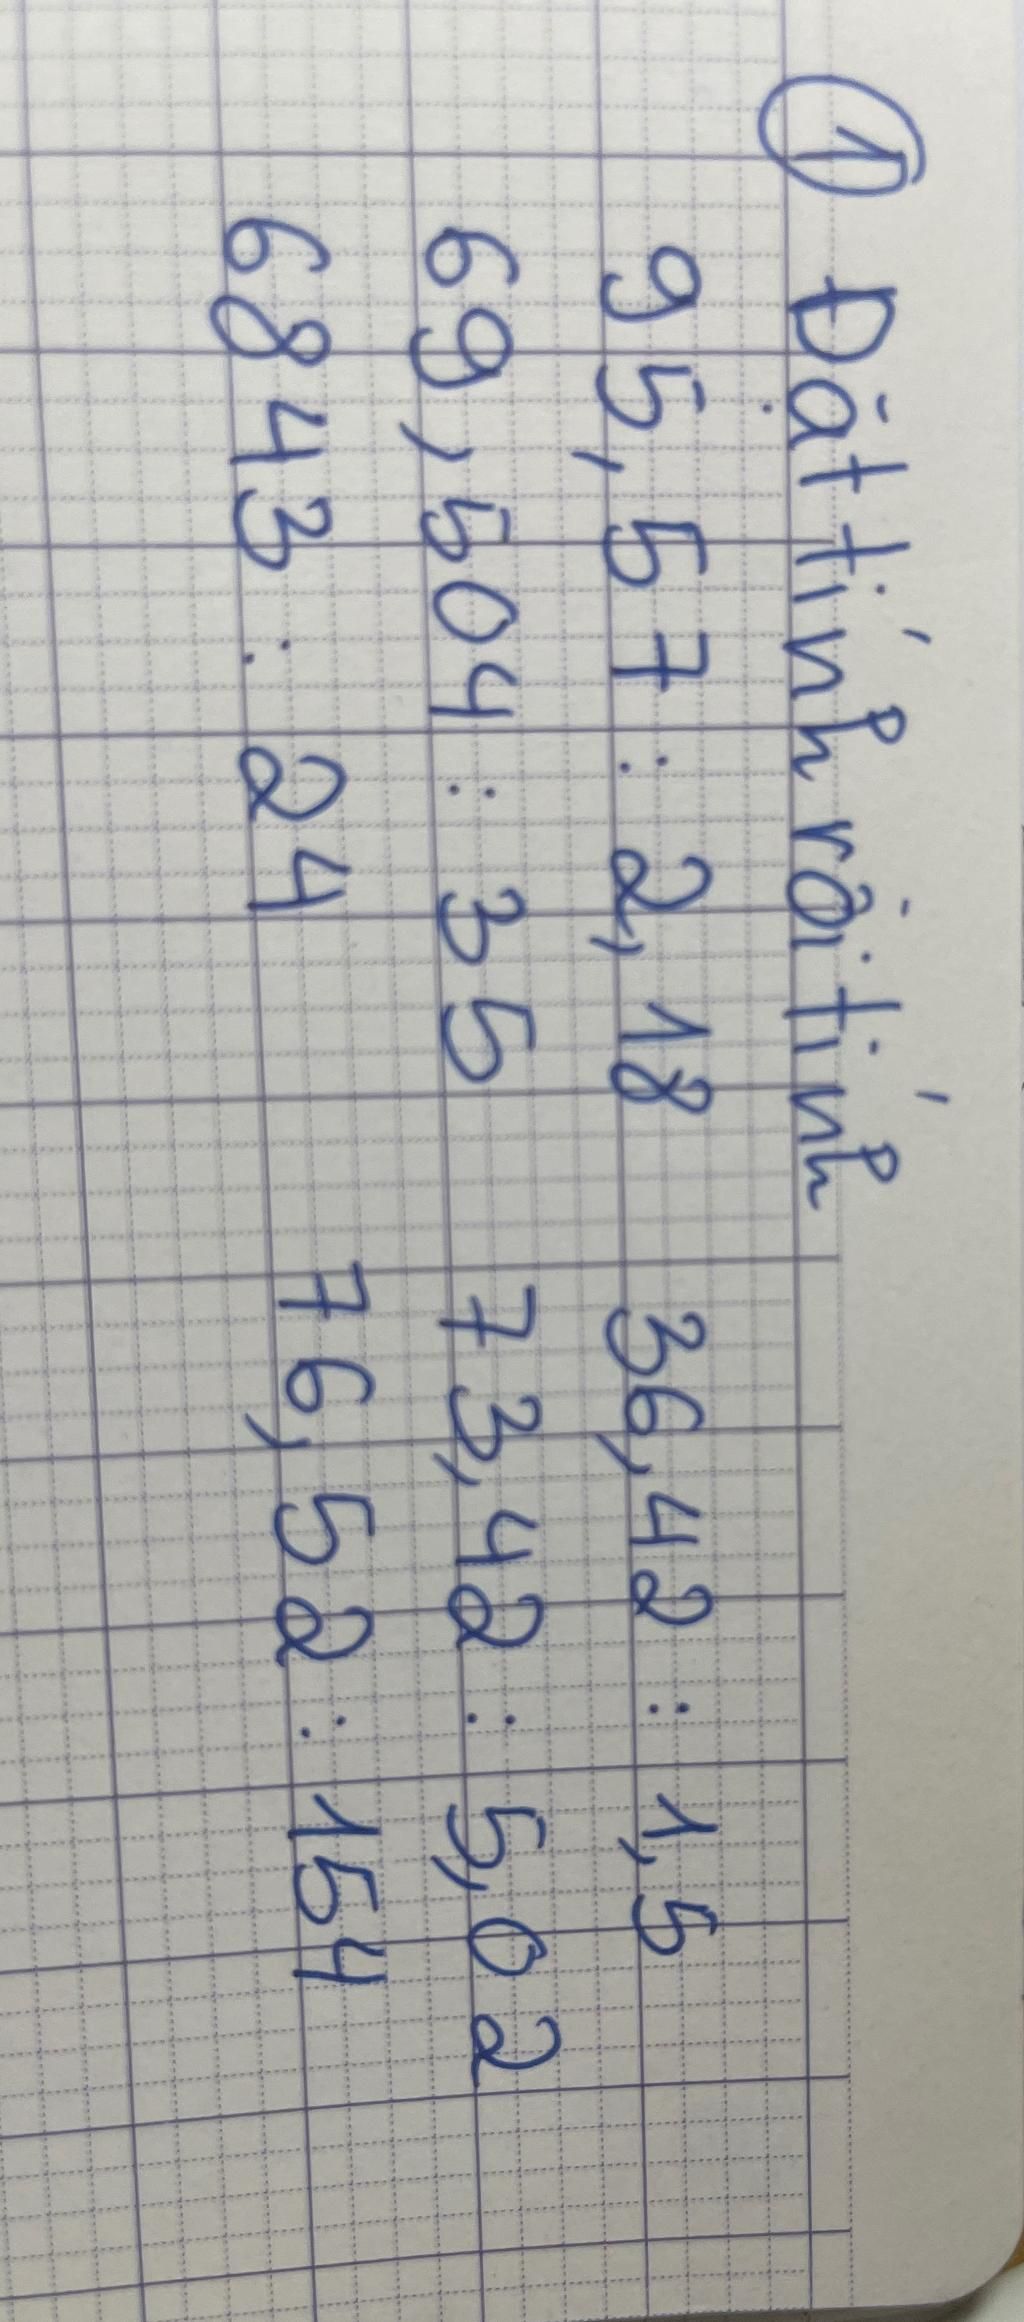 ① Đặt tính rồi tính
95,57 : 2,18 36,42 : 1,5
69,504 : 35 73,42 : 5,02
6843 : 24 76,52 : 154